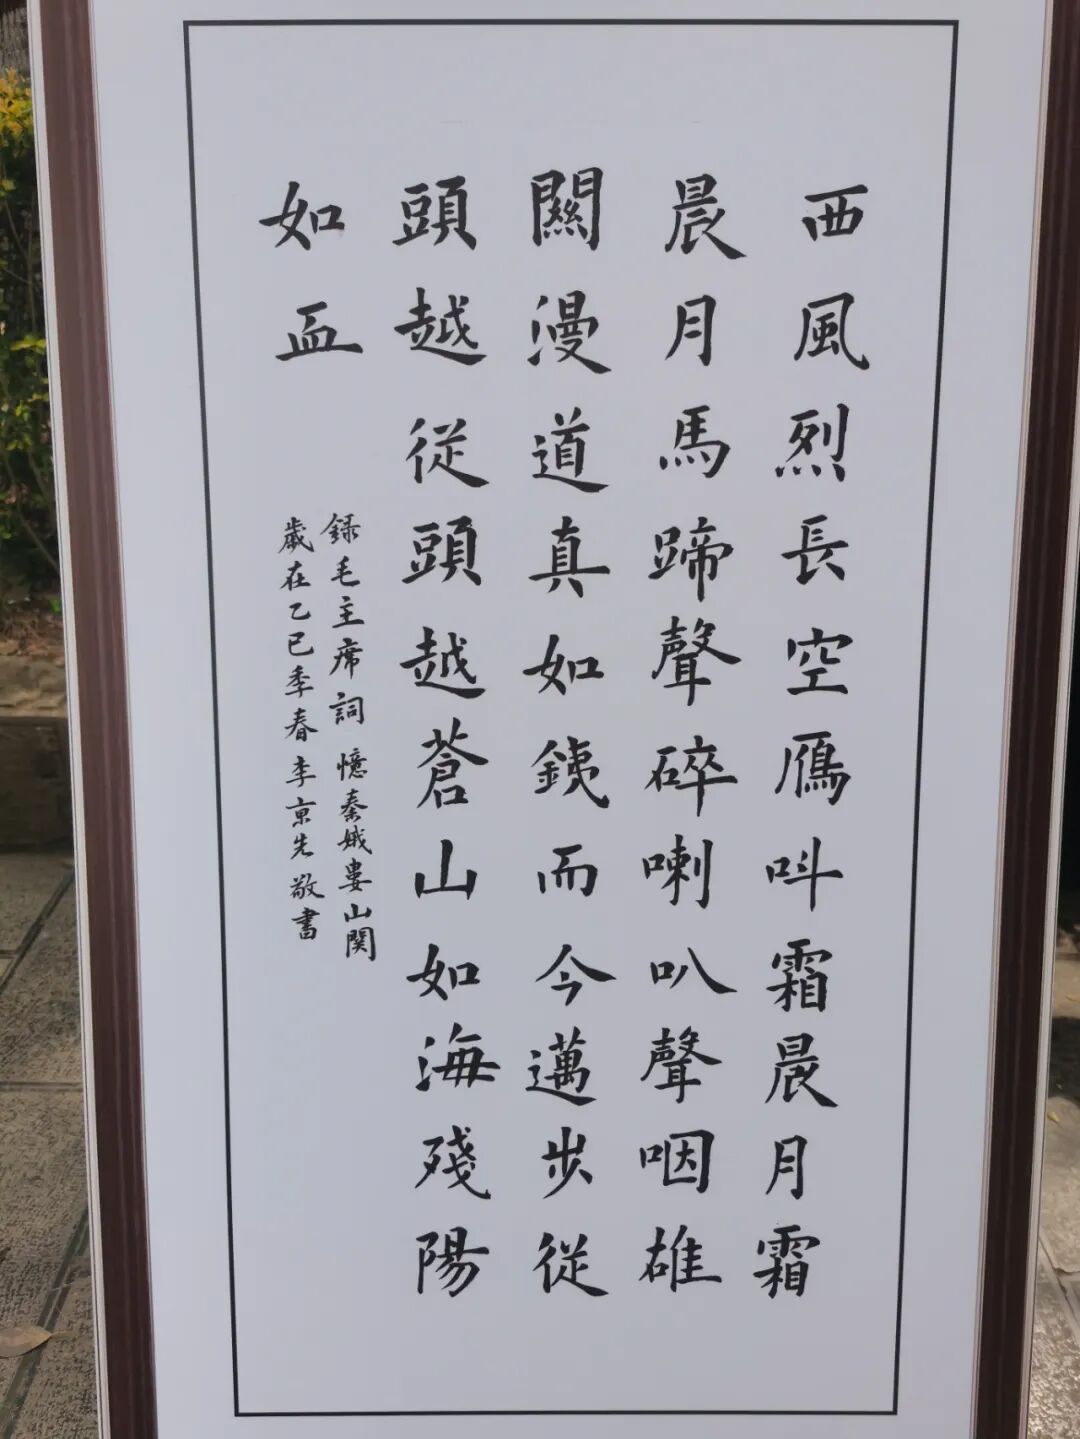 西風烈長空鴈呌霜晨月霜
晨月馬蹄聲碎喇叭聲咽雄
關漫道真如銕而今邁步從
頭越從頭越蒼山如海殘陽
如血
録毛主席詞 憶秦娥婁山関
歲在乙巳季春李亰先敬書